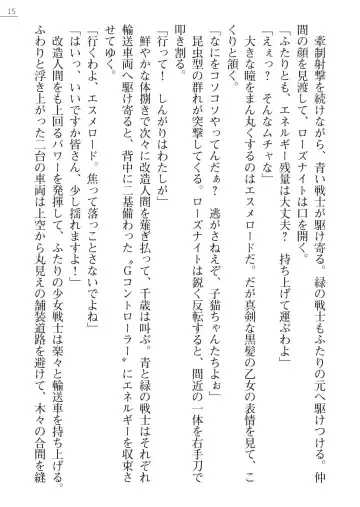 15
牽制射撃を続けながら、青い戦士が駆け寄る。緑の戦士もふたりの元へ駆けつける。仲
間の顔を見渡して、ローズナイトは口を開く。
「ふたりとも、エネルギー残量は大丈夫？　持ち上げて運ぶわよ」
「えぇっ？　そんなムチャな」
大きな瞳をまん丸くするのはエスメロードだ。だが真剣な黒髪の乙女の表情を見て、こ
くりと頷く。
「なにをコソコソやってんだぁ？　逃がさねえぞ、子猫ちゃんたちよぉ」
昆虫型の群れが突撃してくる。ローズナイトは鋭く反転すると、間近の一体を右手刀で
叩き割る。
「行って！　しんがりはわたしが」
鮮やかな体捌きで次々に改造人間を薙ぎ払って、千歳は叫ぶ。青と緑の戦士はそれぞれ
輸送車両へ駆け寄ると、背中に二基備わった〝Ｇコントローラー〟にエネルギーを収束さ
せてゆく。
「行くわよ、エスメロード。焦って落っことさないでよね」
「はいっ、いいですか皆さん、少し揺れますよ！」
改造人間をも上回るパワーを発揮して、ふたりの少女戦士は楽々と輸送車を持ち上げる。
ふわりと浮き上がった二台の車両は上空から丸見えの舗装道路を避けて、木々の合間を縫